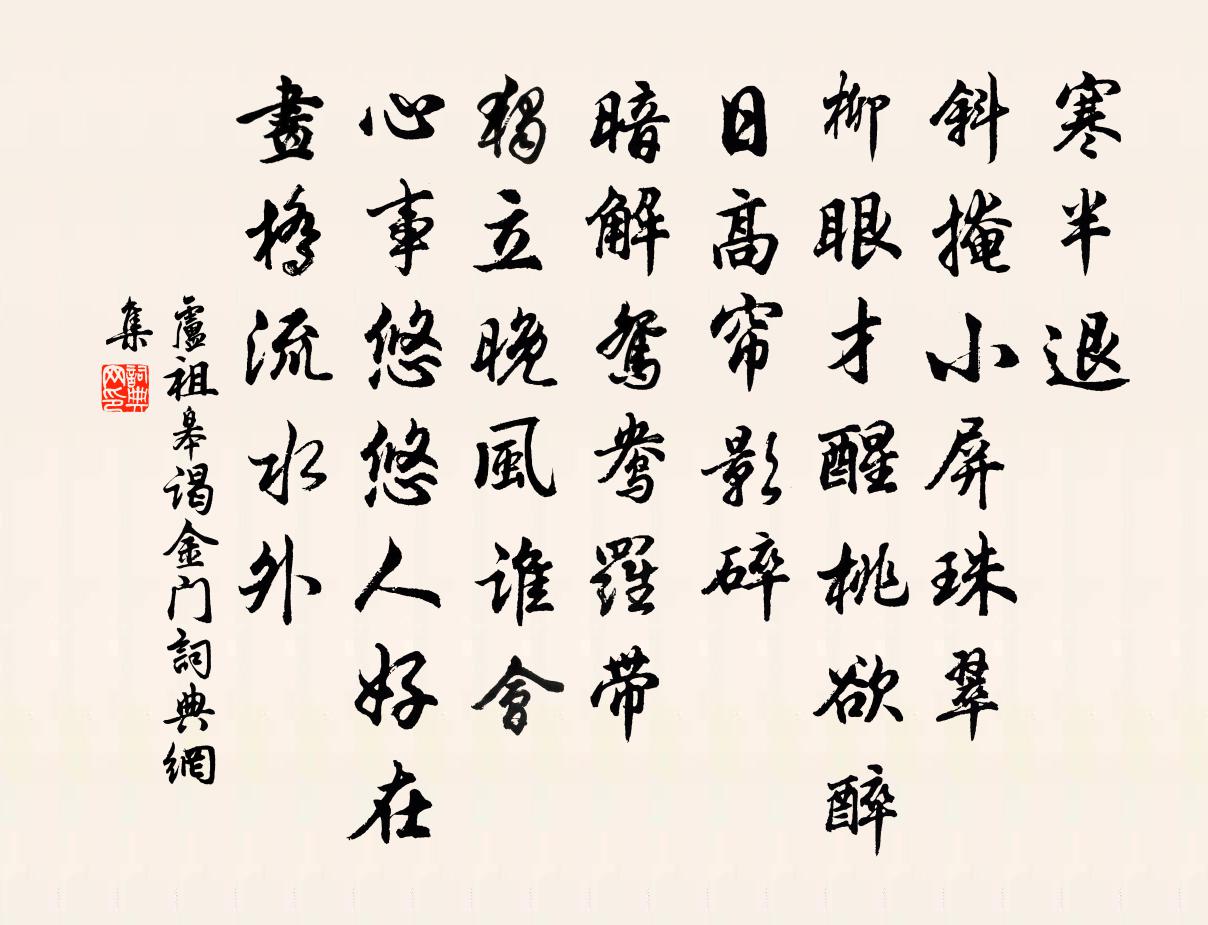 寒半退
斜掩小屏珠翠
柳眼才醒桃欲醉
日高帘影碎
暗解鸳鸯羅带
獨立晚風誰會
心事悠悠人好在
畫橋流水外
盧祖皋谒金门詞典網
集
詞典
网印